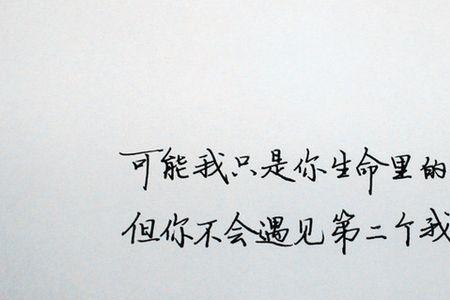 可能我只是你生命里的
但你不会遇见第二个我